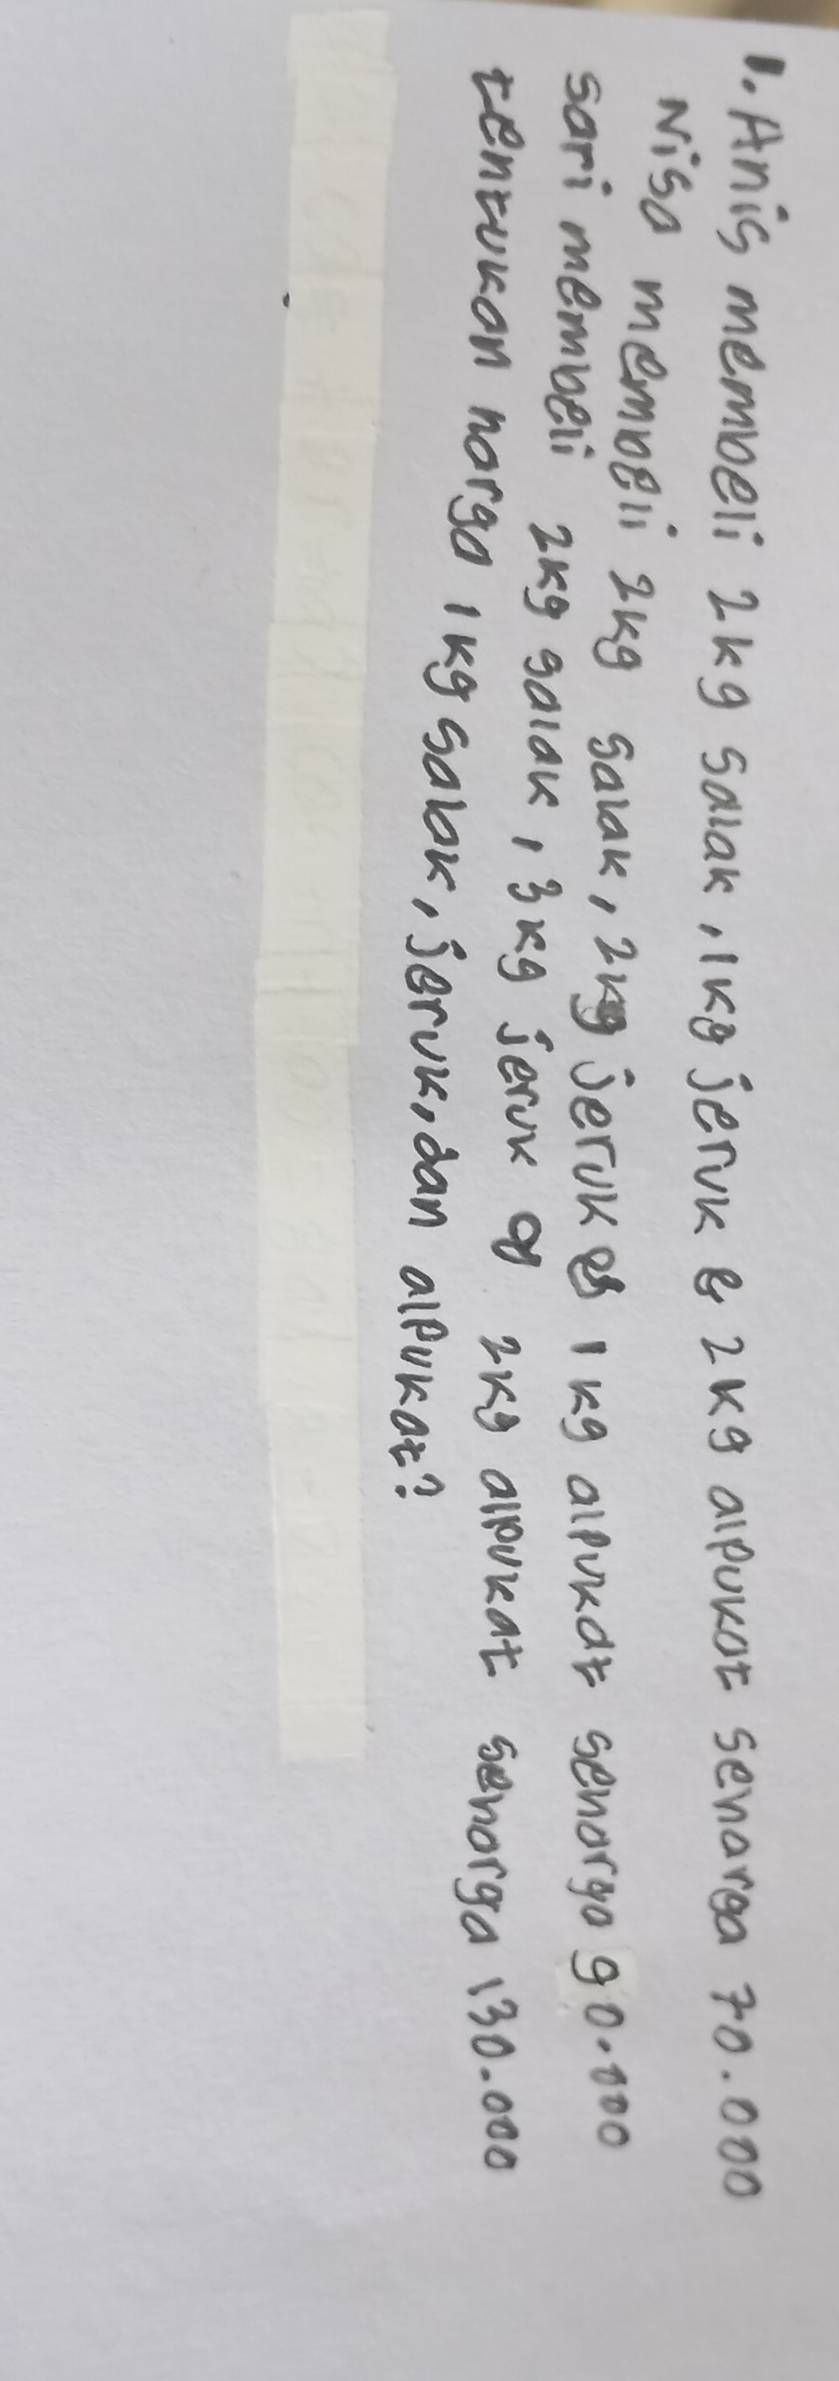 1. Anis membeli 2kg salak, 1kg jeruk & 2kg alpukat seharga 70.000
Nisa membeli 2kg salak, 2kg jeruk & 1kg alpukat seharga 90.000
sari membeli 2kg salak, 3kg jeruk & 2kg alpukat seharga 130.000
tentukan harga 1kg salak, jeruk, dan alpukat?